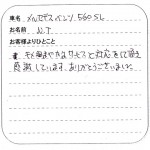 車名 メルセデスベンツ 560SL
お名前 N.T
お客様よりひとこと
きめ細やかなサービスと対応をして頂き
感謝しています。ありがとうございました